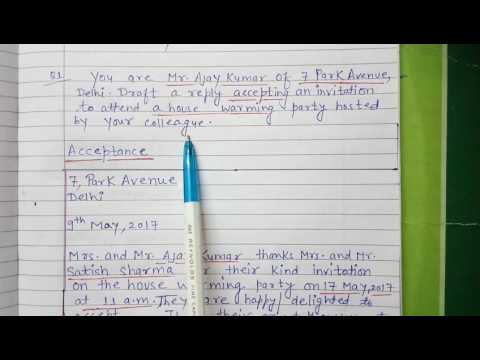 Q1 You are Mr. Ajay Kumar of 7 Park Avenue,
Delhi. Draft a reply accepting an invitation
to attend a house warming party hosted
by your colleague.
Acceptance
7, Park Avenue
Delhi
9th May, 2017
Mrs. and Mr. Ajay Kumar thanks Mrs. and Mr.
Satish Sharma their kind invitation
on the house warming party on 17 May, 2017
at 11 a.m. They are happy/delighted to
REYNOLDS